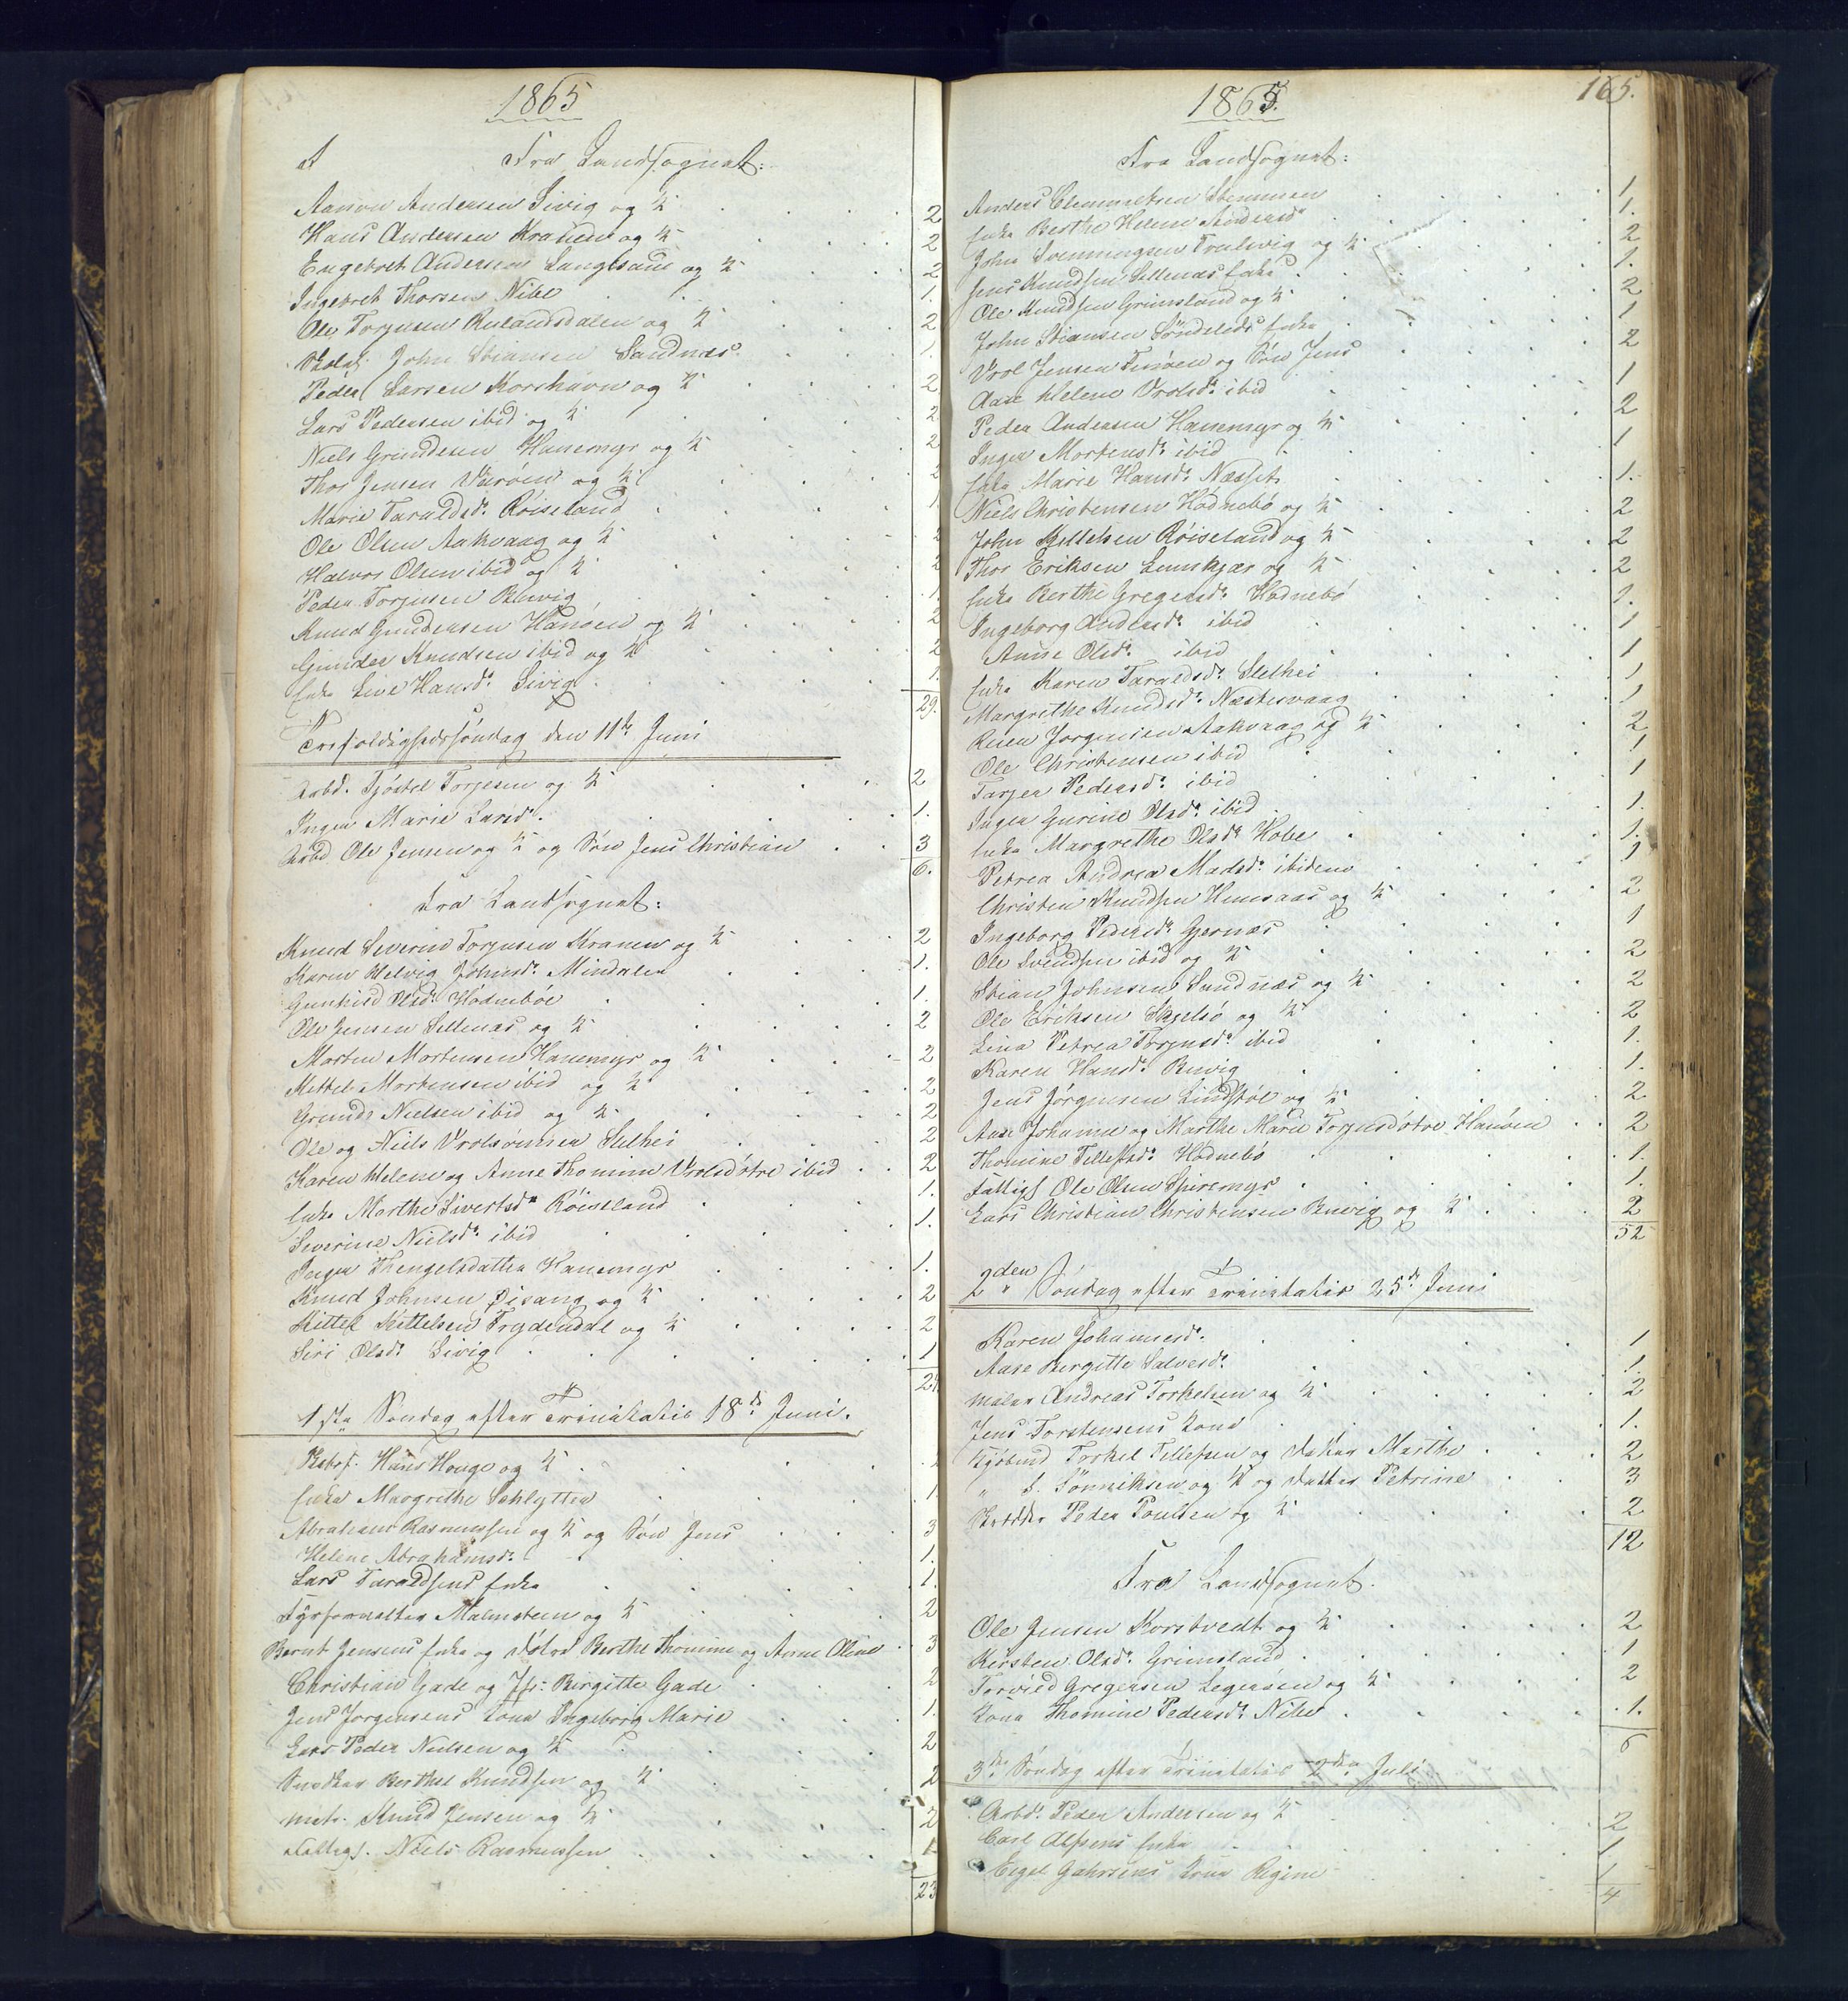 1865
Fra Landsognet:
Aanon Andersen Sivig og K. 2
Hans Andersen Kranen og K. 2
Engebret Andersen Langesaae og K. 2
Ingebret Thorsen Nibe 1.
Ole Torjusen Revlandsdalen og K. 2
John Stiansen Sandnæs 1.
Peder Larsen Korshavn og K. 2
Lars Pedersen ibid og K. 2
Niels Grundesen Hanemyr og K. 2
Thor Jensen Værøen og K. 2
Marie Taraldsd. Röiseland 1
Ole Olsen Aakvaag og K. 2
Halvor Olsen ibid og K. 2
Peder Torjusen Buvig 1
Knud Gundersen Hanöen og K. 2
Gunder Knudsen ibid og K. 2
Enke Live Hansd. Sivig 1.
29.
Trefoldighedssöndag den 11te Juni
Arbd. Tjöstel Torjesen og K. 2
Inger Marie Larsd. 1.
Arbd Ole Jensen og K og Sön Jens Christian 3
6.
Fra Landsognet:
Knud Severin Torjusen Kranen og K. 2
Karen Helvig Johnsd. Mindalen 1.
Gunhild Olsd. Hödneböe 1.
Ole Jensen Sellenæs og K. 2
Morten Mortensen Hanemyr og K. 2
Kettel Mortensen ibid og K. 2
Grunde Nielsen ibid og K. 2
Ole og Niels Vrolsönner Slethei 2
Karen Helene og Anne Thomine Vrolsdötre ibid 2
Enke Marthe Sivertsd. Röiseland 1.
Severine Nielsd. ibid 1.
Inger Thengelsdatter Hanemyr 1.
Knud Johnsen Öisang og K. 2
Kittel Kittelsen Trydendal og K. 2
Siri Olsd. Sivig 1
1ste Söndag efter Trinitatis 18de Juni.
Hans Houge og K.
Enke Margrethe Schlytter 1
Abraham Rasmussen og K og Sön Jens 3
Helene Abrahamsd. 1.
Lars Taraldsens Enke 1.
Fyrforvalter Malmstein og K. 2
Bernt Jensens Enke og Dötre Berthe Thomine og Anne Oline 3
Christian Gade og Jfr: Birgitte Gade 2
Jens Jorgensens Kone Ingeborg Marie 1.
Lars Peder Nielsen og K 2
Snedker Berthel Knudsen og K 2
Matr. Knud Jensen og K. 2
Fattigl. Niels Rasmussen 1
23
165.
1865.
Fra Landsognet:
Anders Clemmetsen Stemmen 1.
Enke Berthe Helene Andersd. 1.
John Svenningsen Tvedevig og K. 2
Jens Knudsen Sellenæs Enke 1.
Ole Knudsen Grimsland og K. 2
John Stiansen Söndeleds Enke 1
Vrol Jensen Furöen og Sön Jens 2
Aase Helene Vrolsd. ibid 1
Peder Andersen Hanemyr og K. 2
Inger Mortensd. ibid 1
Enke Marie Hansd. Næsset 1.
Niels Christensen Hödnebö og K. 2
John Kittelsen Röiseland og K 2
Thor Eriksen Leunskjær og K 2
Enke Berthe Gregersd. Hödnebö 1.
Ingeborg Andersd. ibid 1
Anne Olsd. ibid 1
Enke Karen Taraldsd. Slethei 1
Margrethe Knudsd. Næstesvaag 1
Jorgensen Aakvaag og K 2
Ole Christensen ibid 1
Tarjer Pedersd. ibid 1
Inger Gurine Olsd. ibid 1.
Enke Margrethe Olsd. Hobe 1.
Petrea Andrea Madsd. ibidem 1
Christen Knudsen Humsaas og K 2
Ingeborg Pedersd. Gjernæs 1
Ole Svendsen ibid og K 2
Stian Johnsen Sandnæs og K 2
Ole Eriksen Skjelsö og K 2
Lina Petrea Torjusd. ibid 1.
Karen Hansd. Buvig 1.
Jens Jörgensen Lindstöl og K 2
Aase Johanne og Marthe Marie Torjusdötre Hanöen 2
Thomine Tellefsd. Hödnebö 1.
Fattigl Ole Olsen Spiremyr 1.
Lars Christian Christensen Buvig og K 2
52
2den Söndag efter Trinitatis 25de Juni
Karen Johannesd. 1
Aase Birgitte Salvesd. 1.
Maler Andreas Torkelsen og K 2
Jens Torstensens Kone 1.
Kjöbmd Torkel Tellefsen og Datter Marthe 2
" S. Tönniksen og K og Datter Petrine 3
Peder Poulsen og K 2
12
Fra Landsognet.
Ole Jensen Korstvedt og K 2
Kirsten Olsd. Grimsland 1
Torvied Gregersen Legersen og K 2
Kone Thomine Pedersd. Nibe 1.
6
3de Söndag efter Trinitatis 2den Juli
Arbd. Peder Andersen og K 2
Carl Alfsens Enke 1
Engel Gahrsens Kone Regine 1
4